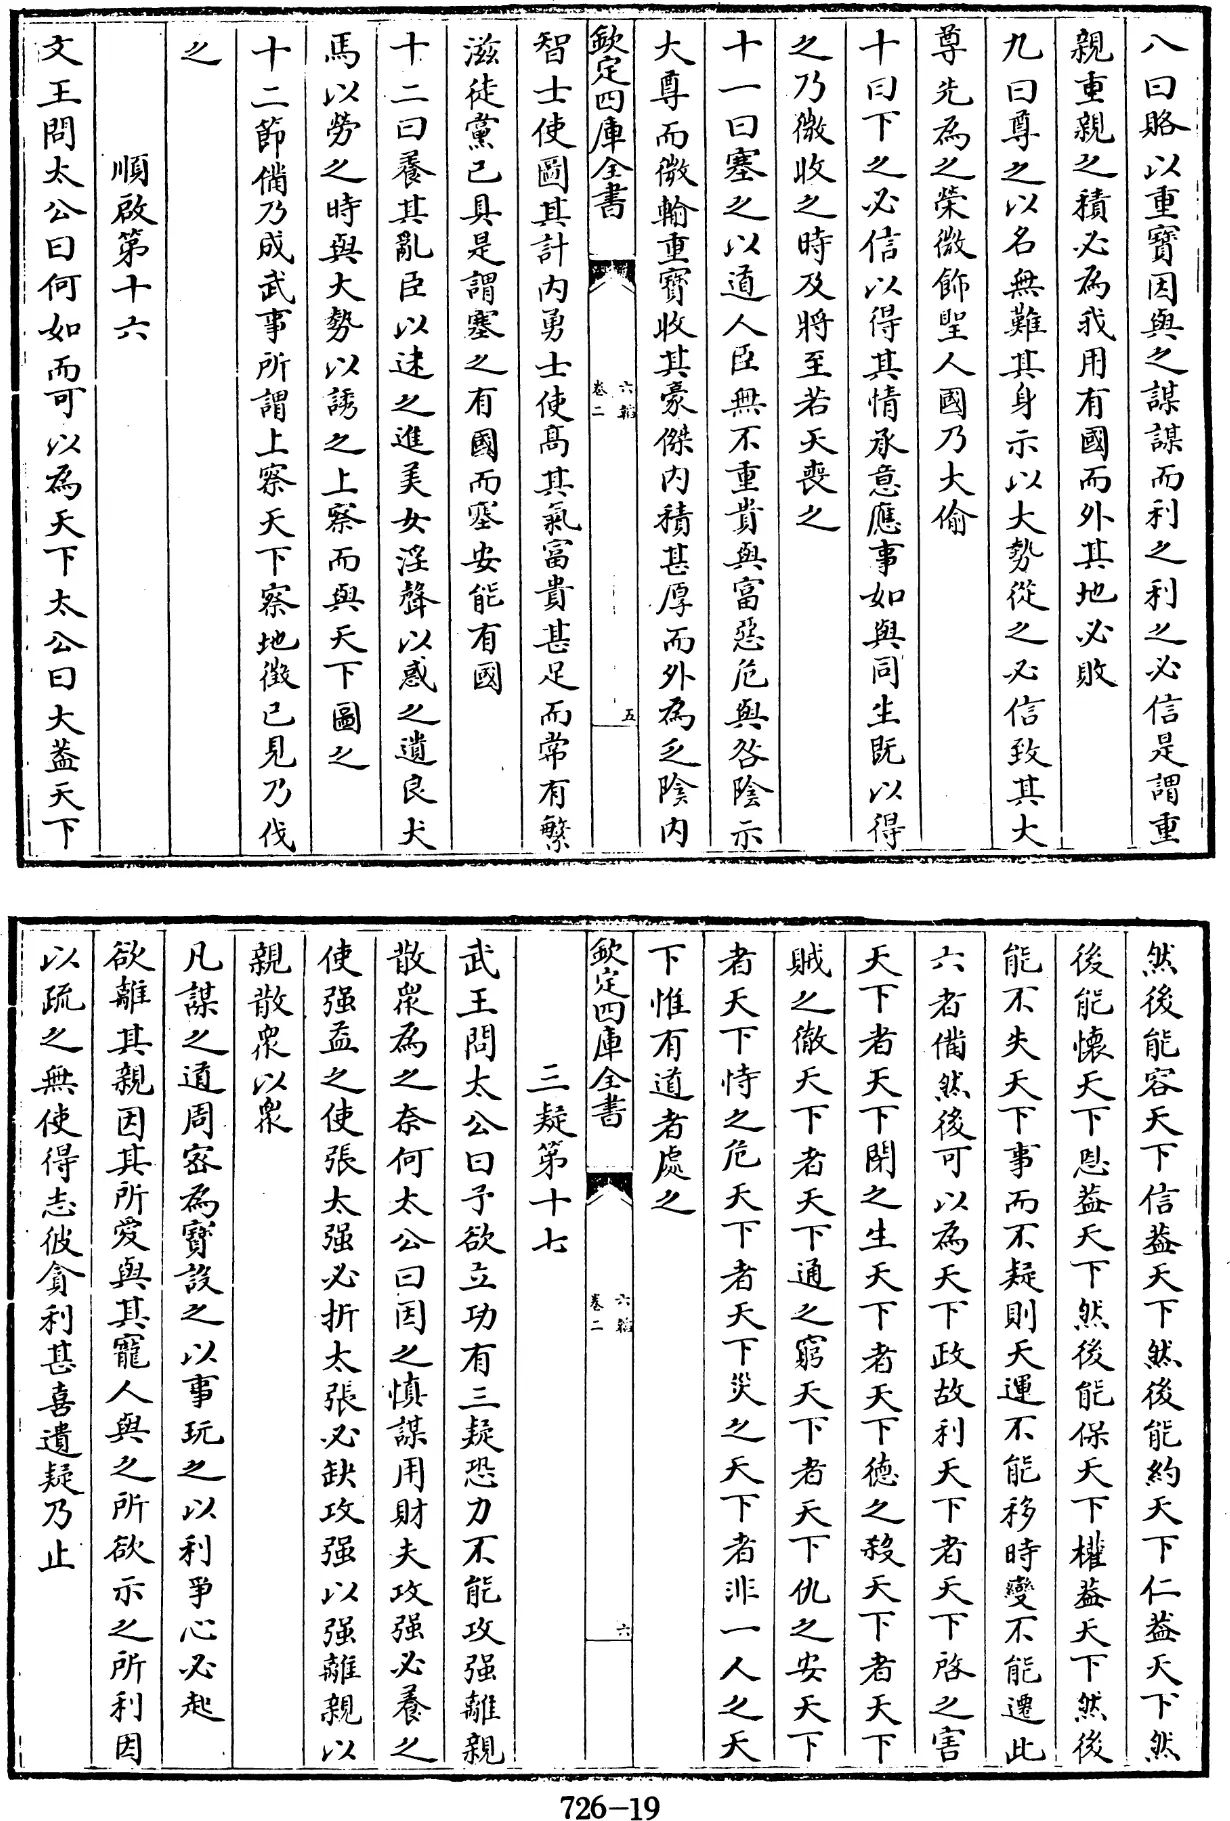 八曰賂以重寶因與之謀謀而利之利之必信是謂重
親重親之積必為我用有國而外其地必敗
九曰尊之以名無難其身示以大勢從之必信致其大
尊先為之榮微飾聖人國乃大偷
十曰下之必信以得其情承意應事如與同生既以得
之乃微收之時及將至若天喪之
十一曰塞之以道人臣無不重貴與富惡危與咎陰示
大尊而微輸重寶收其豪傑内積甚厚而外為乏陰内
欽定四庫全書
六韜
卷二
五
智士使圖其計内勇士使髙其氣富貴甚足而常有繁
滋徒黨已具是謂塞之有國而塞安能有國
十二曰養其亂臣以迷之進美女淫聲以惑之遺良犬
馬以勞之時與大勢以誘之上察而與天下圖之
十二節備乃成武事所謂上察天下察地徵已見乃伐
之
順啟第十六
文王問太公曰何如而可以為天下太公曰大葢天下
然後能容天下信葢天下然後能約天下仁葢天下然
後能懷天下恩葢天下然後能保天下權葢天下然後
能不失天下事而不疑則天運不能移時變不能遷此
六者備然後可以為天下政故利天下者天下啓之害
天下者天下閉之生天下者天下德之殺天下者天下
賊之徹天下者天下通之窮天下者天下仇之安天下
者天下恃之危天下者天下災之天下者非一人之天
下惟有道者處之
欽定四庫全書
六韜
卷二
六
三疑第十七
武王問太公曰予欲立功有三疑恐力不能攻强離親
散衆為之奈何太公曰因之慎謀用財夫攻强必養之
使强益之使張太强必折太張必缺攻强以强離親以
親散衆以衆
凡謀之道周密為寶設之以事玩之以利爭心必起
欲離其親因其所愛與其寵人與之所欲示之所利因
以疏之無使得志彼貪利甚喜遺疑乃止
726-19